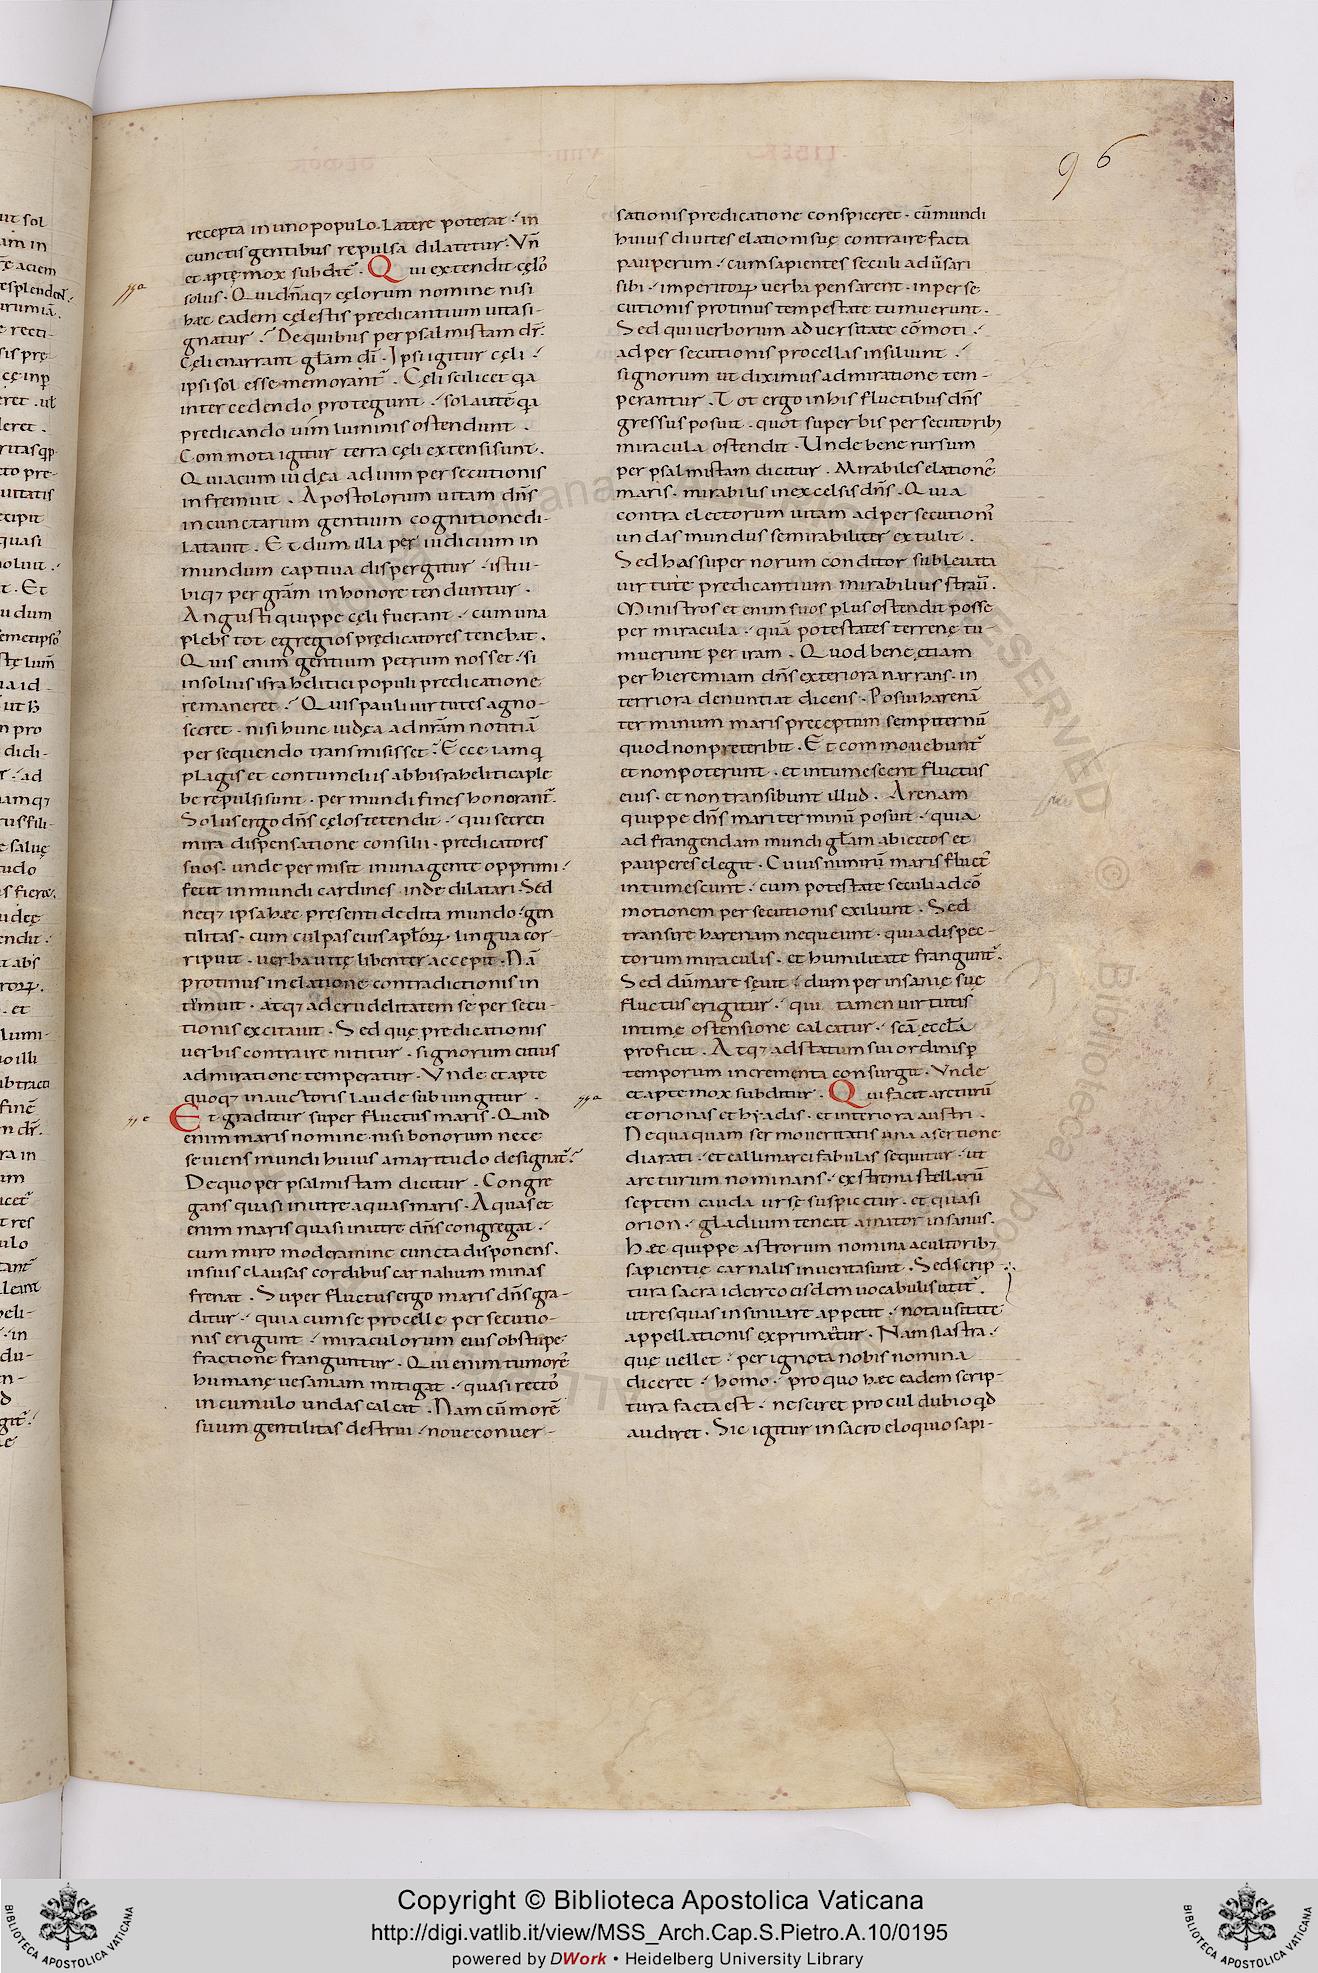 96
recepta in uno populo. Latere poterat · in
cunctis gentibus repulsa dilatetur. Vñ
et aptę mox subdit̄. Qui extendit cęlos̄
solus. Qui dn̄aq; cęlorum nomine nisi
hæc eadem cęlestis predicantium uita si-
gnatur. De quibus per psalmistam dr̄.
Cęli enarrant gl̄am dī. Ipsi igitur cęli
ipsi sol esse memorant̄. Cęli scilicet qa
intercedendo protegunt. sol autē qa
predicando uim luminis ostendunt.
Commota igitur terra cęli extensi sunt.
Quia cum iudęa ad uim persecutionis
infremuit. Apostolorum uitam dn̄s
in cunctarum gentium cognitione di-
latauit. Et dum illa per iudicium in
mundum captiua dispergitur · isti u-
biq; per grām in honore tenduntur.
Angusti quippe cęli fuerant · cum una
plebs tot egregios prędicatores tenebat.
Quis enim gentium petrum nosset · si
in solius israhelitici populi predicatione
remaneret. Quis pauli uirtutes agno-
sceret · nisi hunc iudęa ad nr̄am notitiā
persequendo transmisisset. Ecce iam q
plagis et contumeliis ab hisrahelitica ple
be repulsi sunt · per mundi fines honorant̄.
Solus ergo dn̄s cęlos tetendit · qui secreti
mira dispensatione consilii · predicatores
suos · unde permisit in una gente opprimi
fecit in mundi cardines inde dilatari. Sed
neq; ipsa hæc presenti dedita mundo · gen
tilitas · cum culpas eius apl̄orꝝ · lingua cor-
ripuit · uerba uitę libenter accepit. Nā
protinus in elatione contradictionis in
tumuit · atq; ad crudelitatem se persecu-
tionis excitauit. Sed quę predicationis
uerbis contraire nititur · signorum citius
admiratione temperatur. Vnde et apte
quoq; in auctoris laude subiungitur.
Et graditur super fluctus maris. Quid
enim maris nomine nisi bonorum nece
seuiens mundi huius amaritudo designat̄.
De quo per psalmistam dicitur. Congre
gans quasi in utre aquas maris. Aquas et
enim maris quasi in utre dn̄s congregat ·
cum miro moderamine cuncta disponens.
in suis clausas cordibus carnalium minas
frenat. Super fluctus ergo maris dn̄s gra-
ditur · quia cum se procelle persecutio-
nis erigunt · miraculorum eius obstupe-
fractione franguntur. Qui enim tumorē
humanę uesaniam mitigat · quasi rectos̄
in cumulo undas calcat. Nam cū morē
suum gentilitas destrui · noue conuer-
sationis predicatione conspiceret · cū mundi
huius diuites elationi suę contraire facta
pauperum · cum sapientes seculi aduersari
sibi · imperitorꝝ uerba pensarent · in perse
cutionis protinus tempestate tumuerunt.
Sed qui uerborum aduersitate cōmoti ·
ad persecutionis procellas insiluint ·
signorum ut diximus admiratione tem-
perantur. Tot ergo in his fluctibus dn̄s
gressus posuit · quot superbis persecutorib;
miracula ostendit. Unde bene rursum
per psalmistam dicitur. Mirabiles elationē
maris · mirabilis in excelsis dn̄s. Quia
contra electorum uitam ad persecutionī
undas mundus se mirabiliter extulit.
Sed has supernorum conditor subleuata
uirtute predicantium mirabilius strau.
Ministros etenim suos plus ostendit posse
per miracula · quā potestates terrenę tu
muerunt per iram. Quod bene etiam
per hieremiam dn̄s exteriora narrans · in
terriora denuntiat dicens. Posui harenā
terminum maris preceptum sempiternū
quod non preteribit. Et commouebunt̄
et non poterunt · et intumescent fluctus
eius · et non transibunt illud. Arenam
quippe dn̄s mari terminū posuit · quia
ad frangendam mundi gl̄am abiectos et
pauperes elegit. Cuius nimirū maris fluct̄
intumescunt · cum potestate seculi ad cō
motionem persecutionis exiliunt. Sed
transire harenam nequeunt · quia dispec-
torum miraculis · et humilitate frangunt̄.
Sed dū mare sęuit · dum per insanię suę
fluctus erigitur · qui tamen uirtutis
intimę ostensione calcatur · scā eccl̄a
proficit. Atq; ad statum sui ordinis p
temporum incrementa consurgit. Vnde
et apte mox subditur. Qui facit arcturū
et orionas et hyadas · et interiora austri.
Nequaquam sermo ueritatis una asertione
diarati · et callimarci fabulas sequitur · ut
arcturum nominans · extrema stellarū
septem cauda ursę suspicetur · et quasi
orion · gladium teneat amator insanus.
Hæc quippe astrorum nomina a cultorib;
sapientię carnalis inuenta sunt. Sed scrip
tura sacra idcirco eisdem uocabulis utit̄.
ut res quas insinuare appetit · nota usitate
appellationis exprimatur. Nam si astra ·
quę uellet · per ignota nobis nomina
diceret · homo · pro quo hæc eadem scrip-
tura facta est · nesciret procul dubio qd
audiret. Sic igitur in sacro eloquio sapi-
Copyright © Biblioteca Apostolica Vaticana
http://digi.vatlib.it/view/MSS_Arch.Cap.S.Pietro.A.10/0195
powered by DWork • Heidelberg University Library
BIBLIOTECA APOSTOLICA VATICANA
BIBLIOTECA APOSTOLICA VATICANA